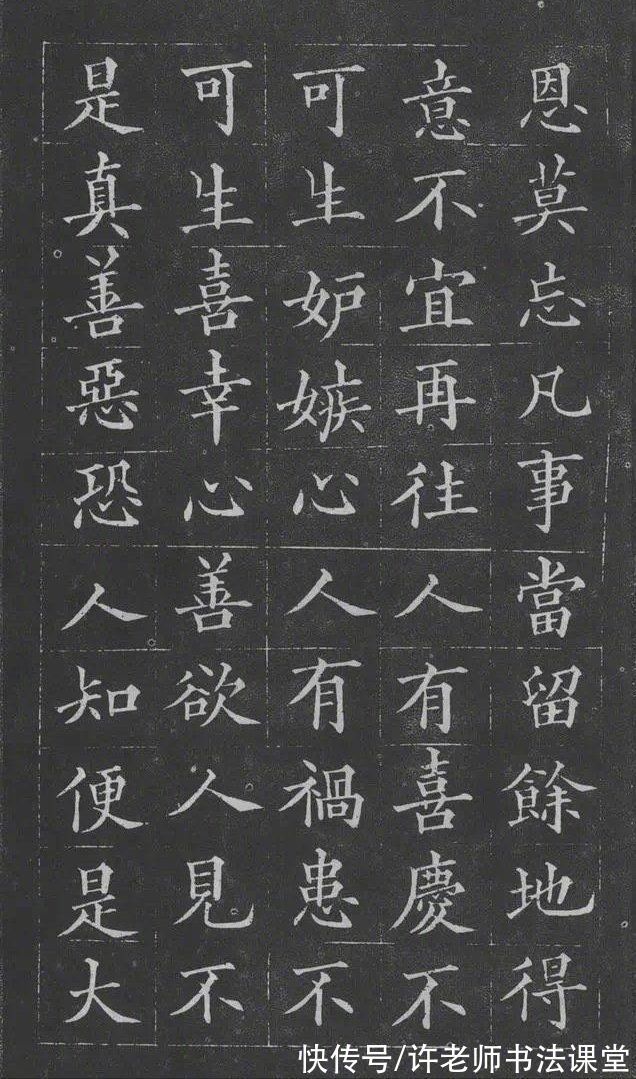 恩莫忘凡事當留餘地得
意不宜再往人有喜慶不
可生妒嫉心人有禍患不
可生喜幸心善欲人見不
是真善惡恐人知便是大
快传号/许老师书法课堂